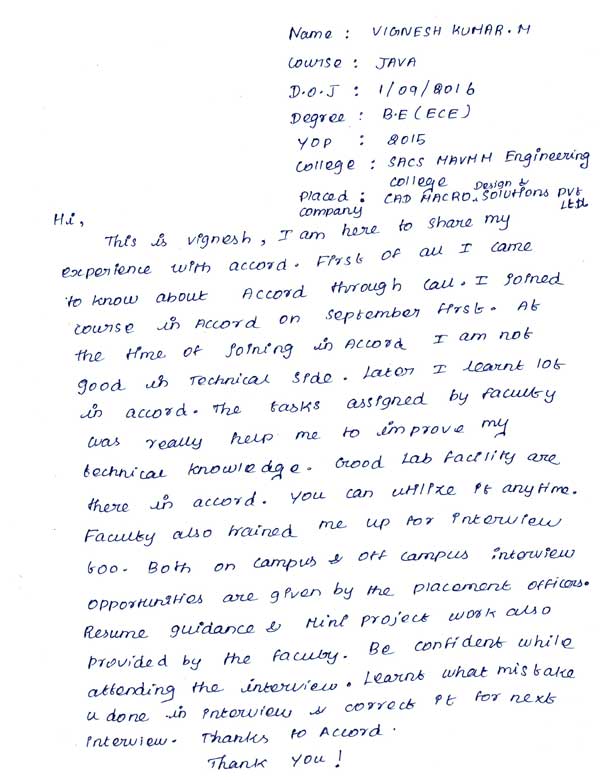 Name : VIGNESH KUMAR.M
Course : JAVA
D.O.J : 1/09/2016
Degree : B.E (ECE)
YOP : 2015
College : SACS MAVMM Engineering
college
Placed : CAD MACRO Design & Solutions Pvt
company Ltd
Hi,
This is vignesh, I am here to share my
experience with accord. First of all I came
to know about Accord through call. I joined
course in Accord on september first. At
the time of joining in Accord I am not
good in Technical side. Later I learnt lot
in accord. The tasks assigned by faculty
was really help me to improve my
technical knowledge. Good Lab facility are
there in accord. You can utilize it anytime.
Faculty also trained me up for interview
too. Both on campus & off campus interview
opportunities are given by the placement officers.
Resume guidance & Mini project work also
provided by the faculty. Be confident while
attending the interview. Learnt what mistake
u done in interview & correct it for next
interview. Thanks to Accord.
Thank You!